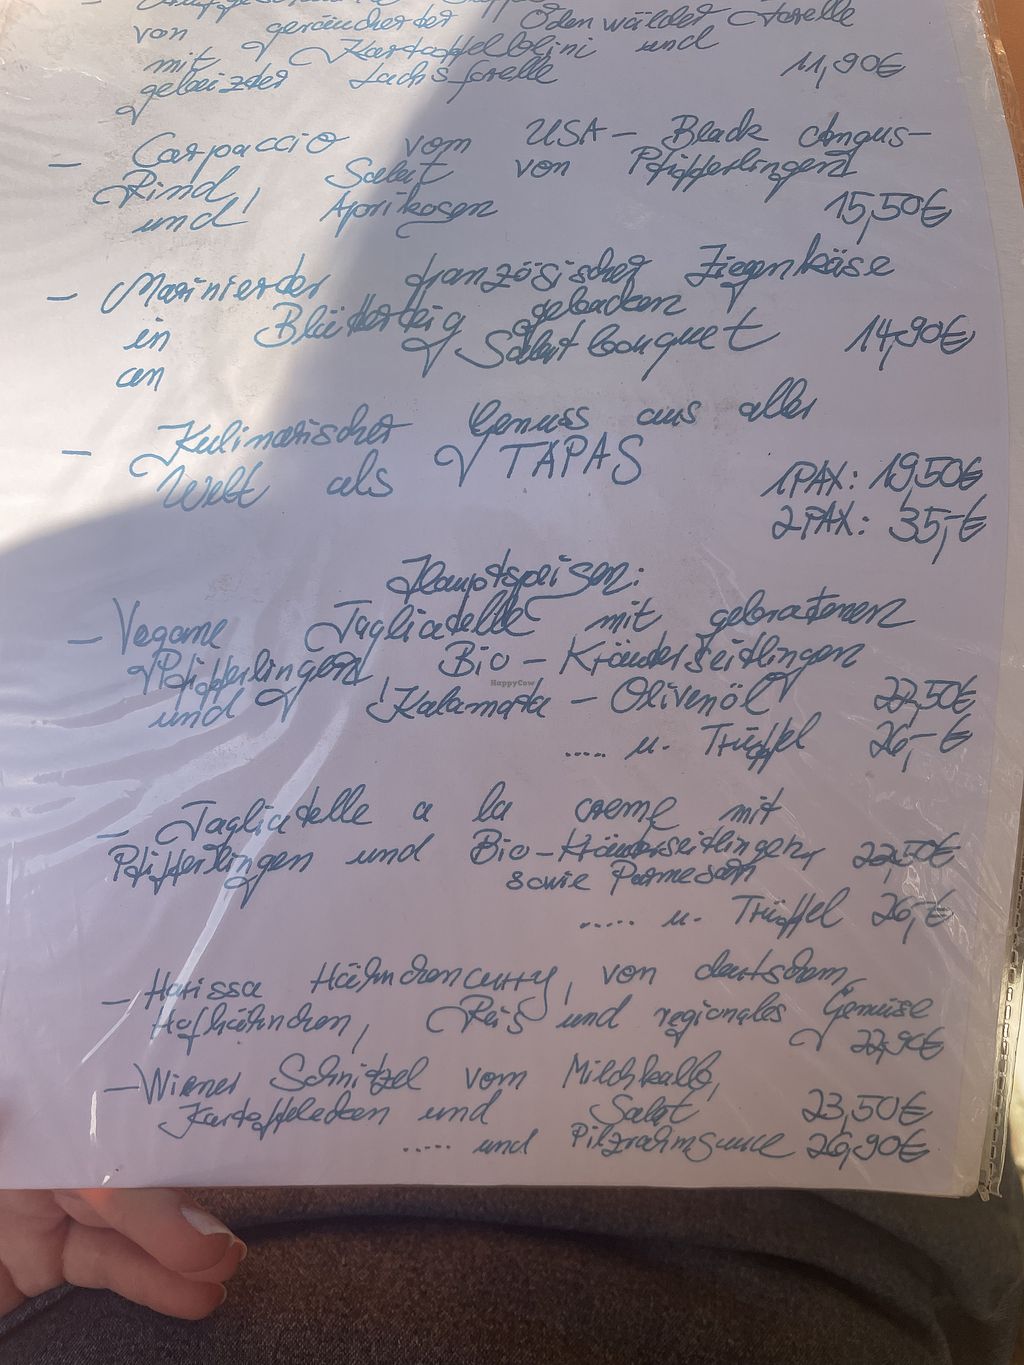 von geräucherter Odenwälder Forelle
mit Kartoffelblini und
gebeizter Lachsforelle 11,90€
- Carpaccio vom USA - Black Angus-
Rind, Salat von Pfifferlingen
und Aprikosen 15,50€
- Marinierter französischer Ziegenkäse
in Blätterteig gebacken
an Salatbouquet 14,90€
- Kulinarischer Genuss aus aller
Welt als TAPAS
1PAX: 19,50€
2PAX: 35,-€
Hauptspeisen:
- Vegane Tagliatelle mit gebratenen
Pfifferlingen, Bio - Kräuterseitlingen
und Kalamata - Olivenöl 22,50€
..... u. Trüffel 26,-€
- Tagliatelle a la creme mit
Pfifferlingen und Bio-Kräuterseitlingen, 22,50€
sowie Parmesan
..... u. Trüffel 26,-€
- Harissa Hähnchencurry, von deutschem
Hofhähnchen, Reis und regionales Gemüse
22,90€
- Wiener Schnitzel vom Milchkalb,
Kartoffelecken und Salat 23,50€
..... und Pilzrahmsauce 26,90€
HappyCow